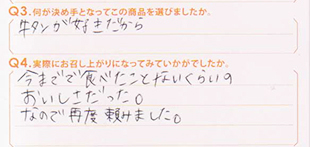 Q3.何が決め手となってこの商品を選びましたか。
牛タンが好きだから
Q4.実際にお召し上がりになってみていかがでしたか。
今までで食べたことないくらいの
おいしさだった。
なので再度頼みました。